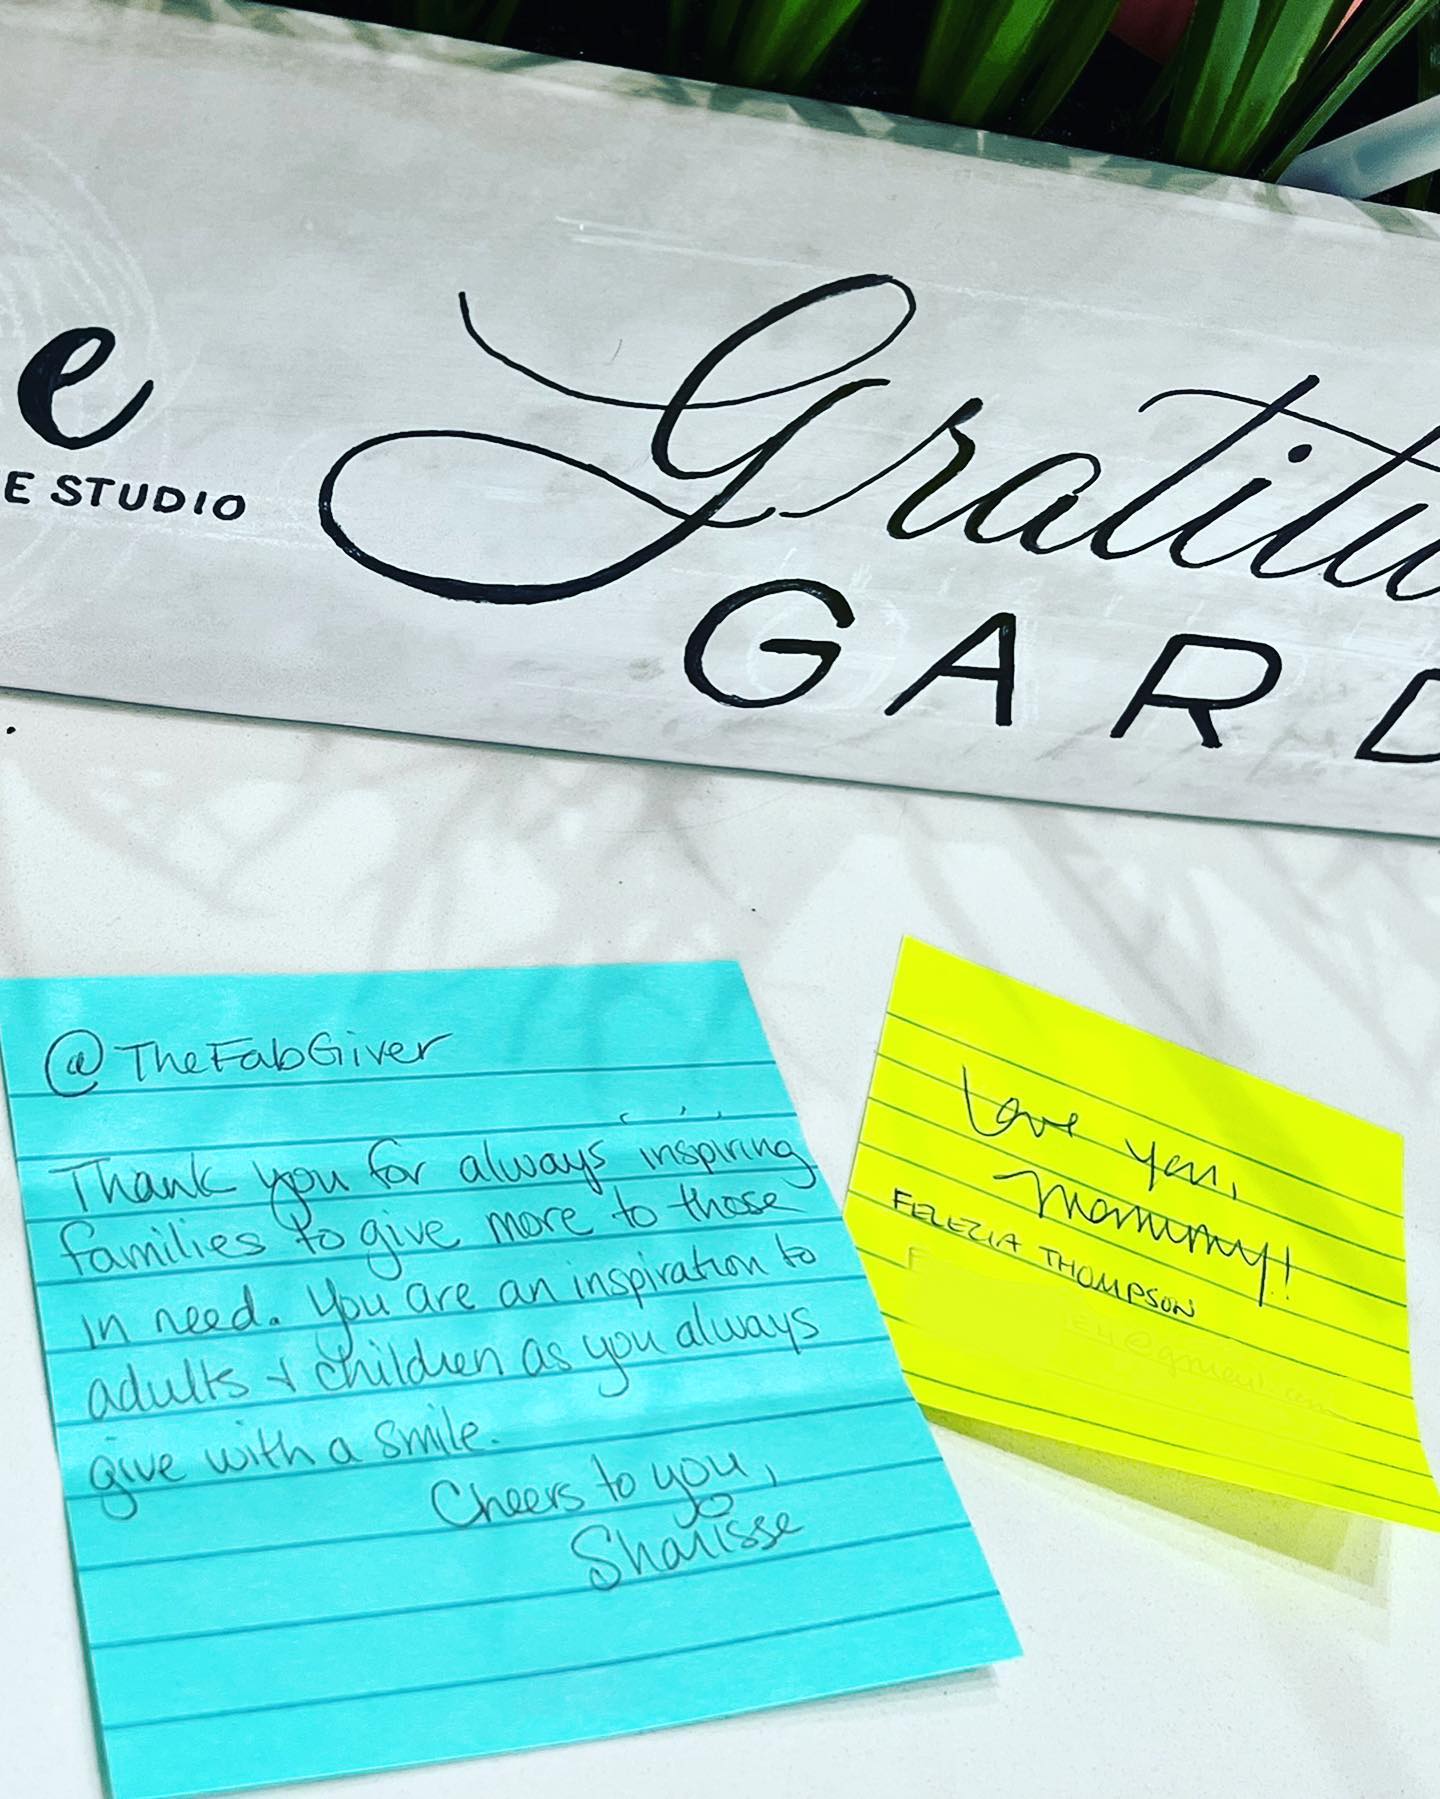 e
E STUDIO
Gratitu
GARD
@TheFabGiver
Thank you for always inspiring
families to give more to those
in need. You are an inspiration to
adults & children as you always
give with a smile.
Cheers to you,
Sharisse
Love you,
Mommy!
FELEZIA THOMPSON
F